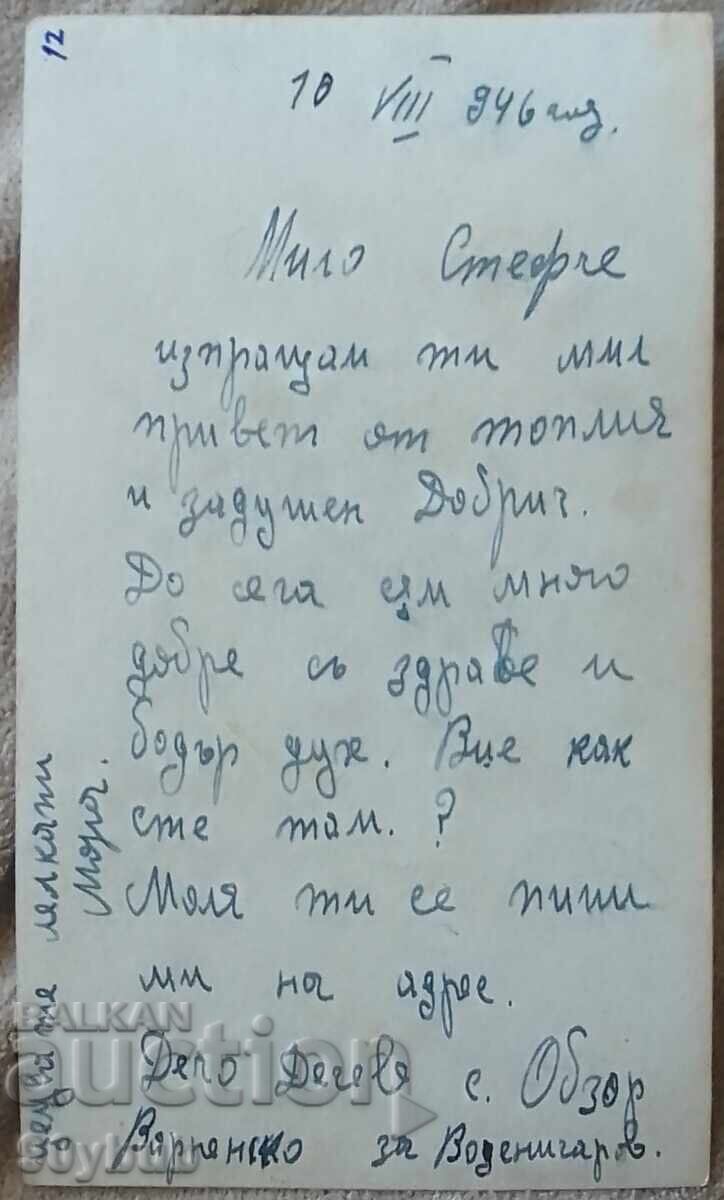 12
10 VIII 946 год.
Мило Стефче
изпращам ти мил
привет от топлия
и задушен Добрич.
До сега съм много
добре съ здраве и
бодър дух. Вие как
сте там. ?
Моля ти се пиши
ми на адрес.
Дечо Дечева с. Обзор
Варненско за Воденичаров.
целува те
BALKAN
auction
Soybub